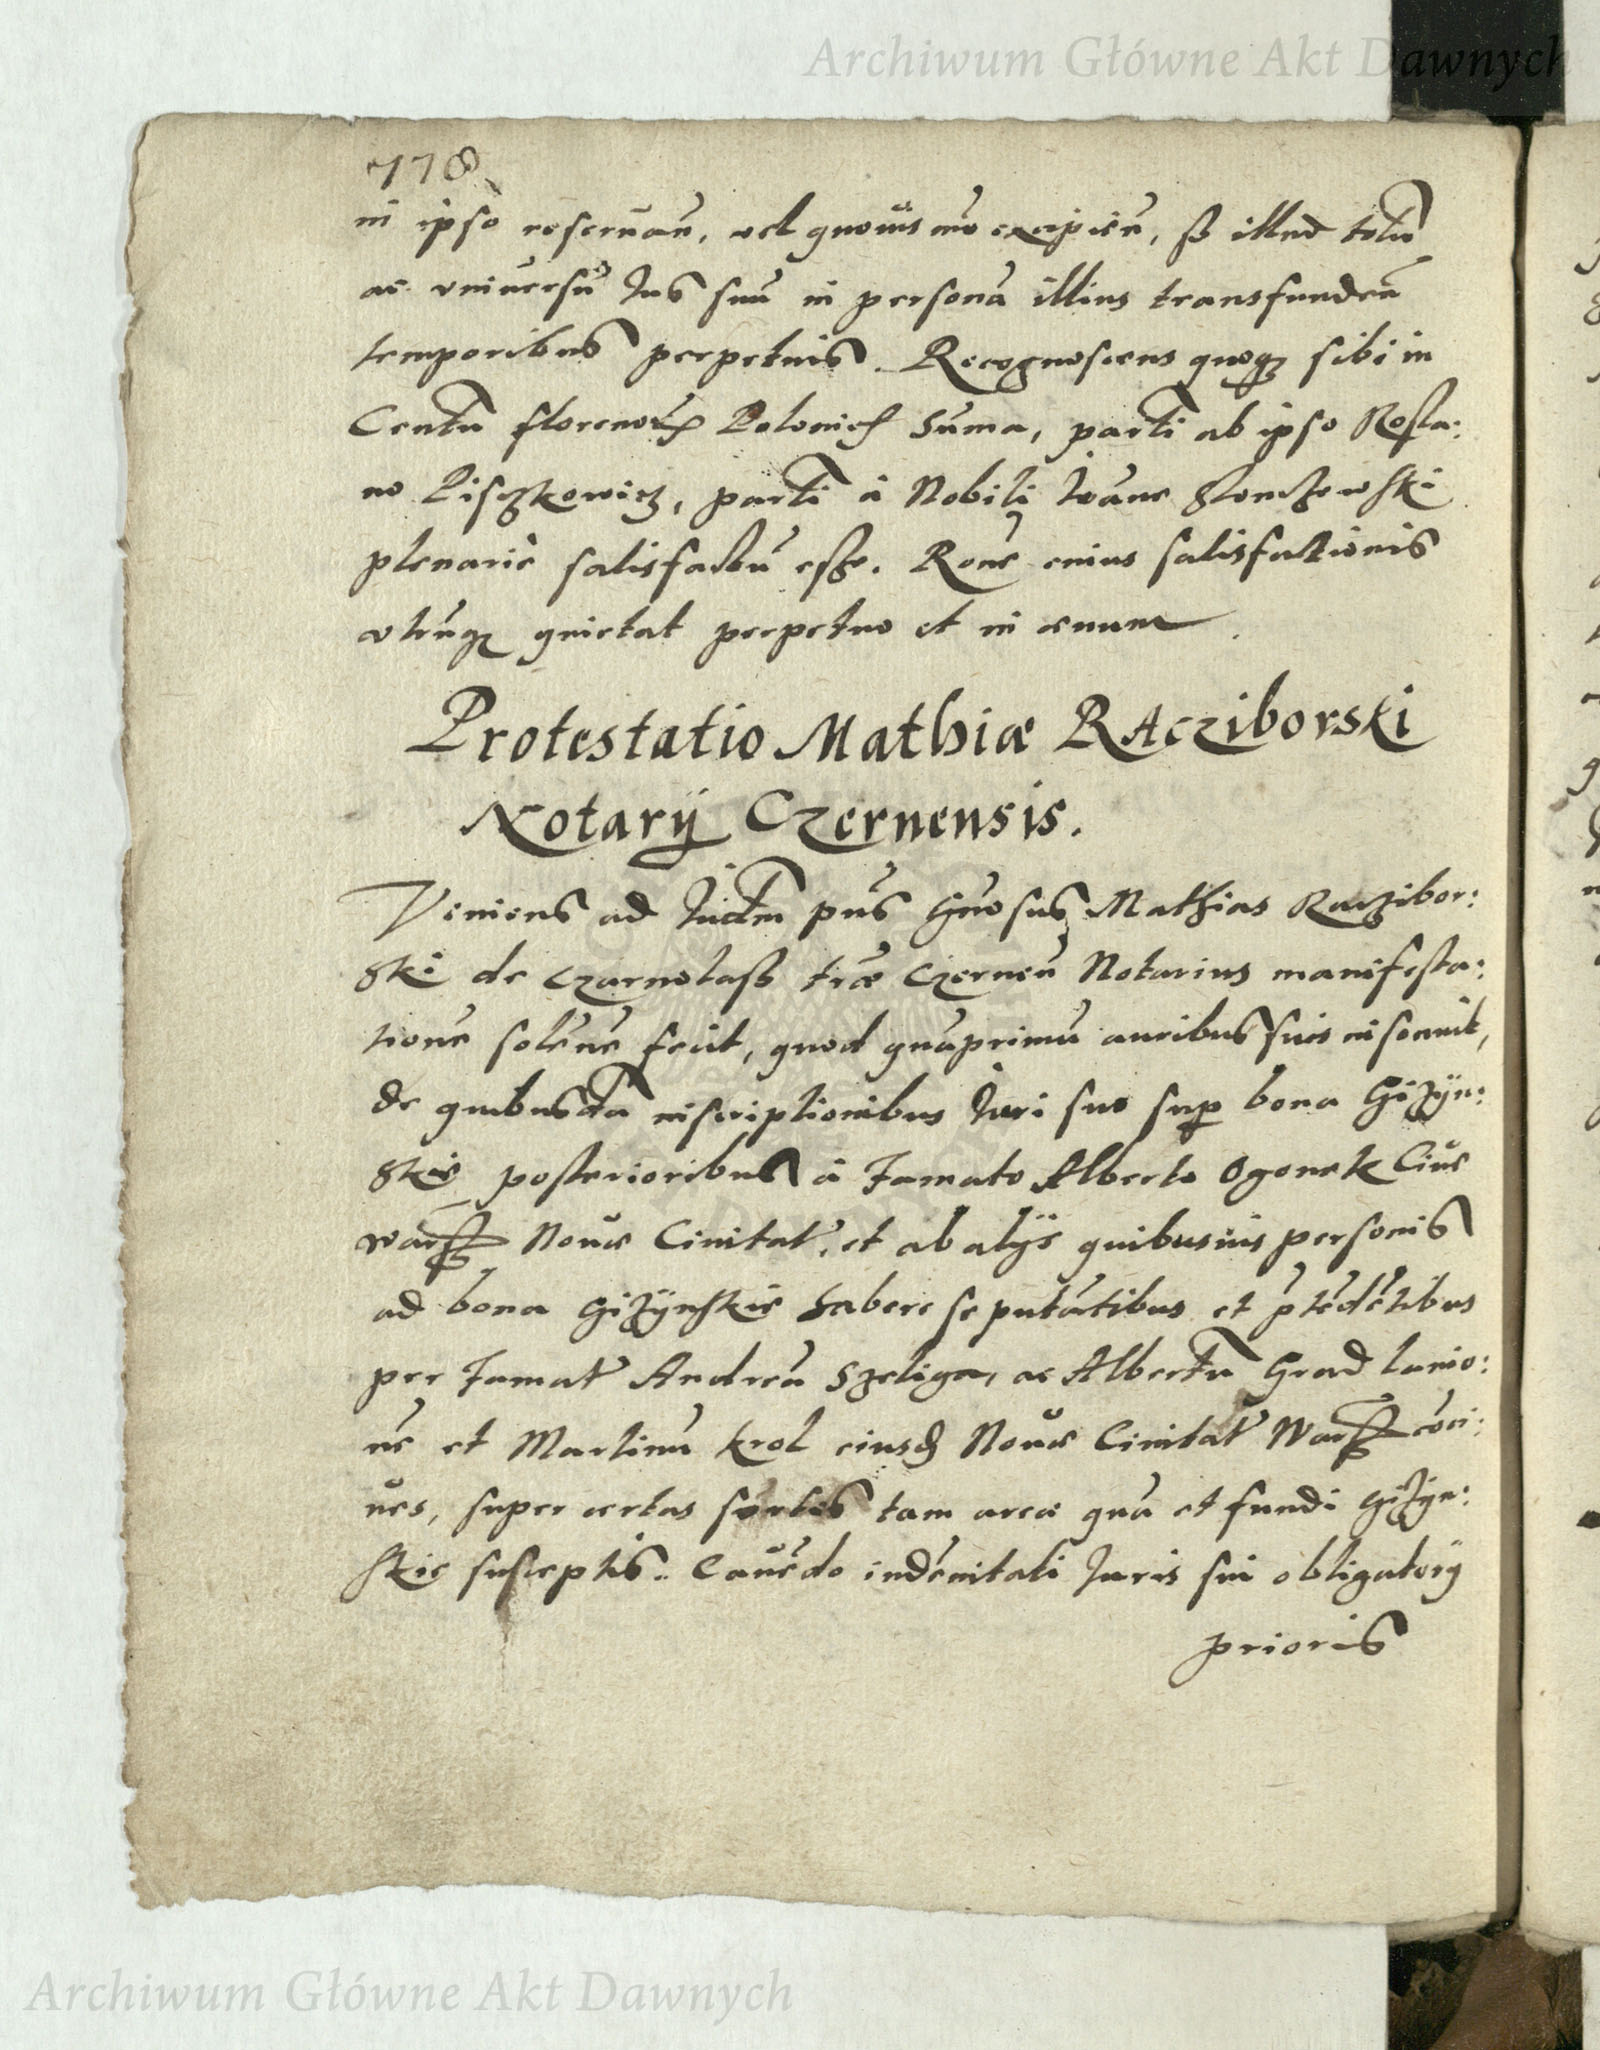 Archiwum Główne Akt Dawnych
778
in ipso reseruan̄, vel quouis mō excipien̄, sʒ illud totū
ac vniuersū Ius suū in personā illius transfundēn
temporibus perpetuis. Recognoscens quoqʒ sibi in
Centū florenorū Polonicł Sūma, partī ab ipso Rosla:
no Pisczkowicz, partī à Nobili Iwane
plenariè satisfactū esse. Rōne cuius satisfactionis
vtrūqʒ quietat perpetuo et in æuum.
Protestatio Mathiæ RAcziborski
Notarÿ Czernensis.
Veniens ad Iudm̄ pn̄s Gn̄rosus Mathias Raczibor:
ski de Czarnolass tr̄æ Czernēn Notarius manifesta:
tionē solēnē fecit, quod quāprimū auribus suis insonuit,
de quibusdā inscriptionibus Iuri suo sup bona Giżÿn:
skie posterioribus à Famato Alberto Ogonek Ciue
Warss Nouæ Ciuitat̄, et ab alÿs quibusuis personis
ad bona Giżÿnskie habere se putātibus et p̄tēdētibus
per Famat̄ Andreā Szeliga, ac Albertū Grad lanio:
nē et Martinū Krol eiusd̄ Nouæ Ciuitat̄ Warss cōci:
ues, super certas sortes tam areæ quā et fundi Giżÿn:
skie susceptis. Cauēdo indēnitati Iuris sui obligatorÿ
prioris
Archiwum Główne Akt Dawnych